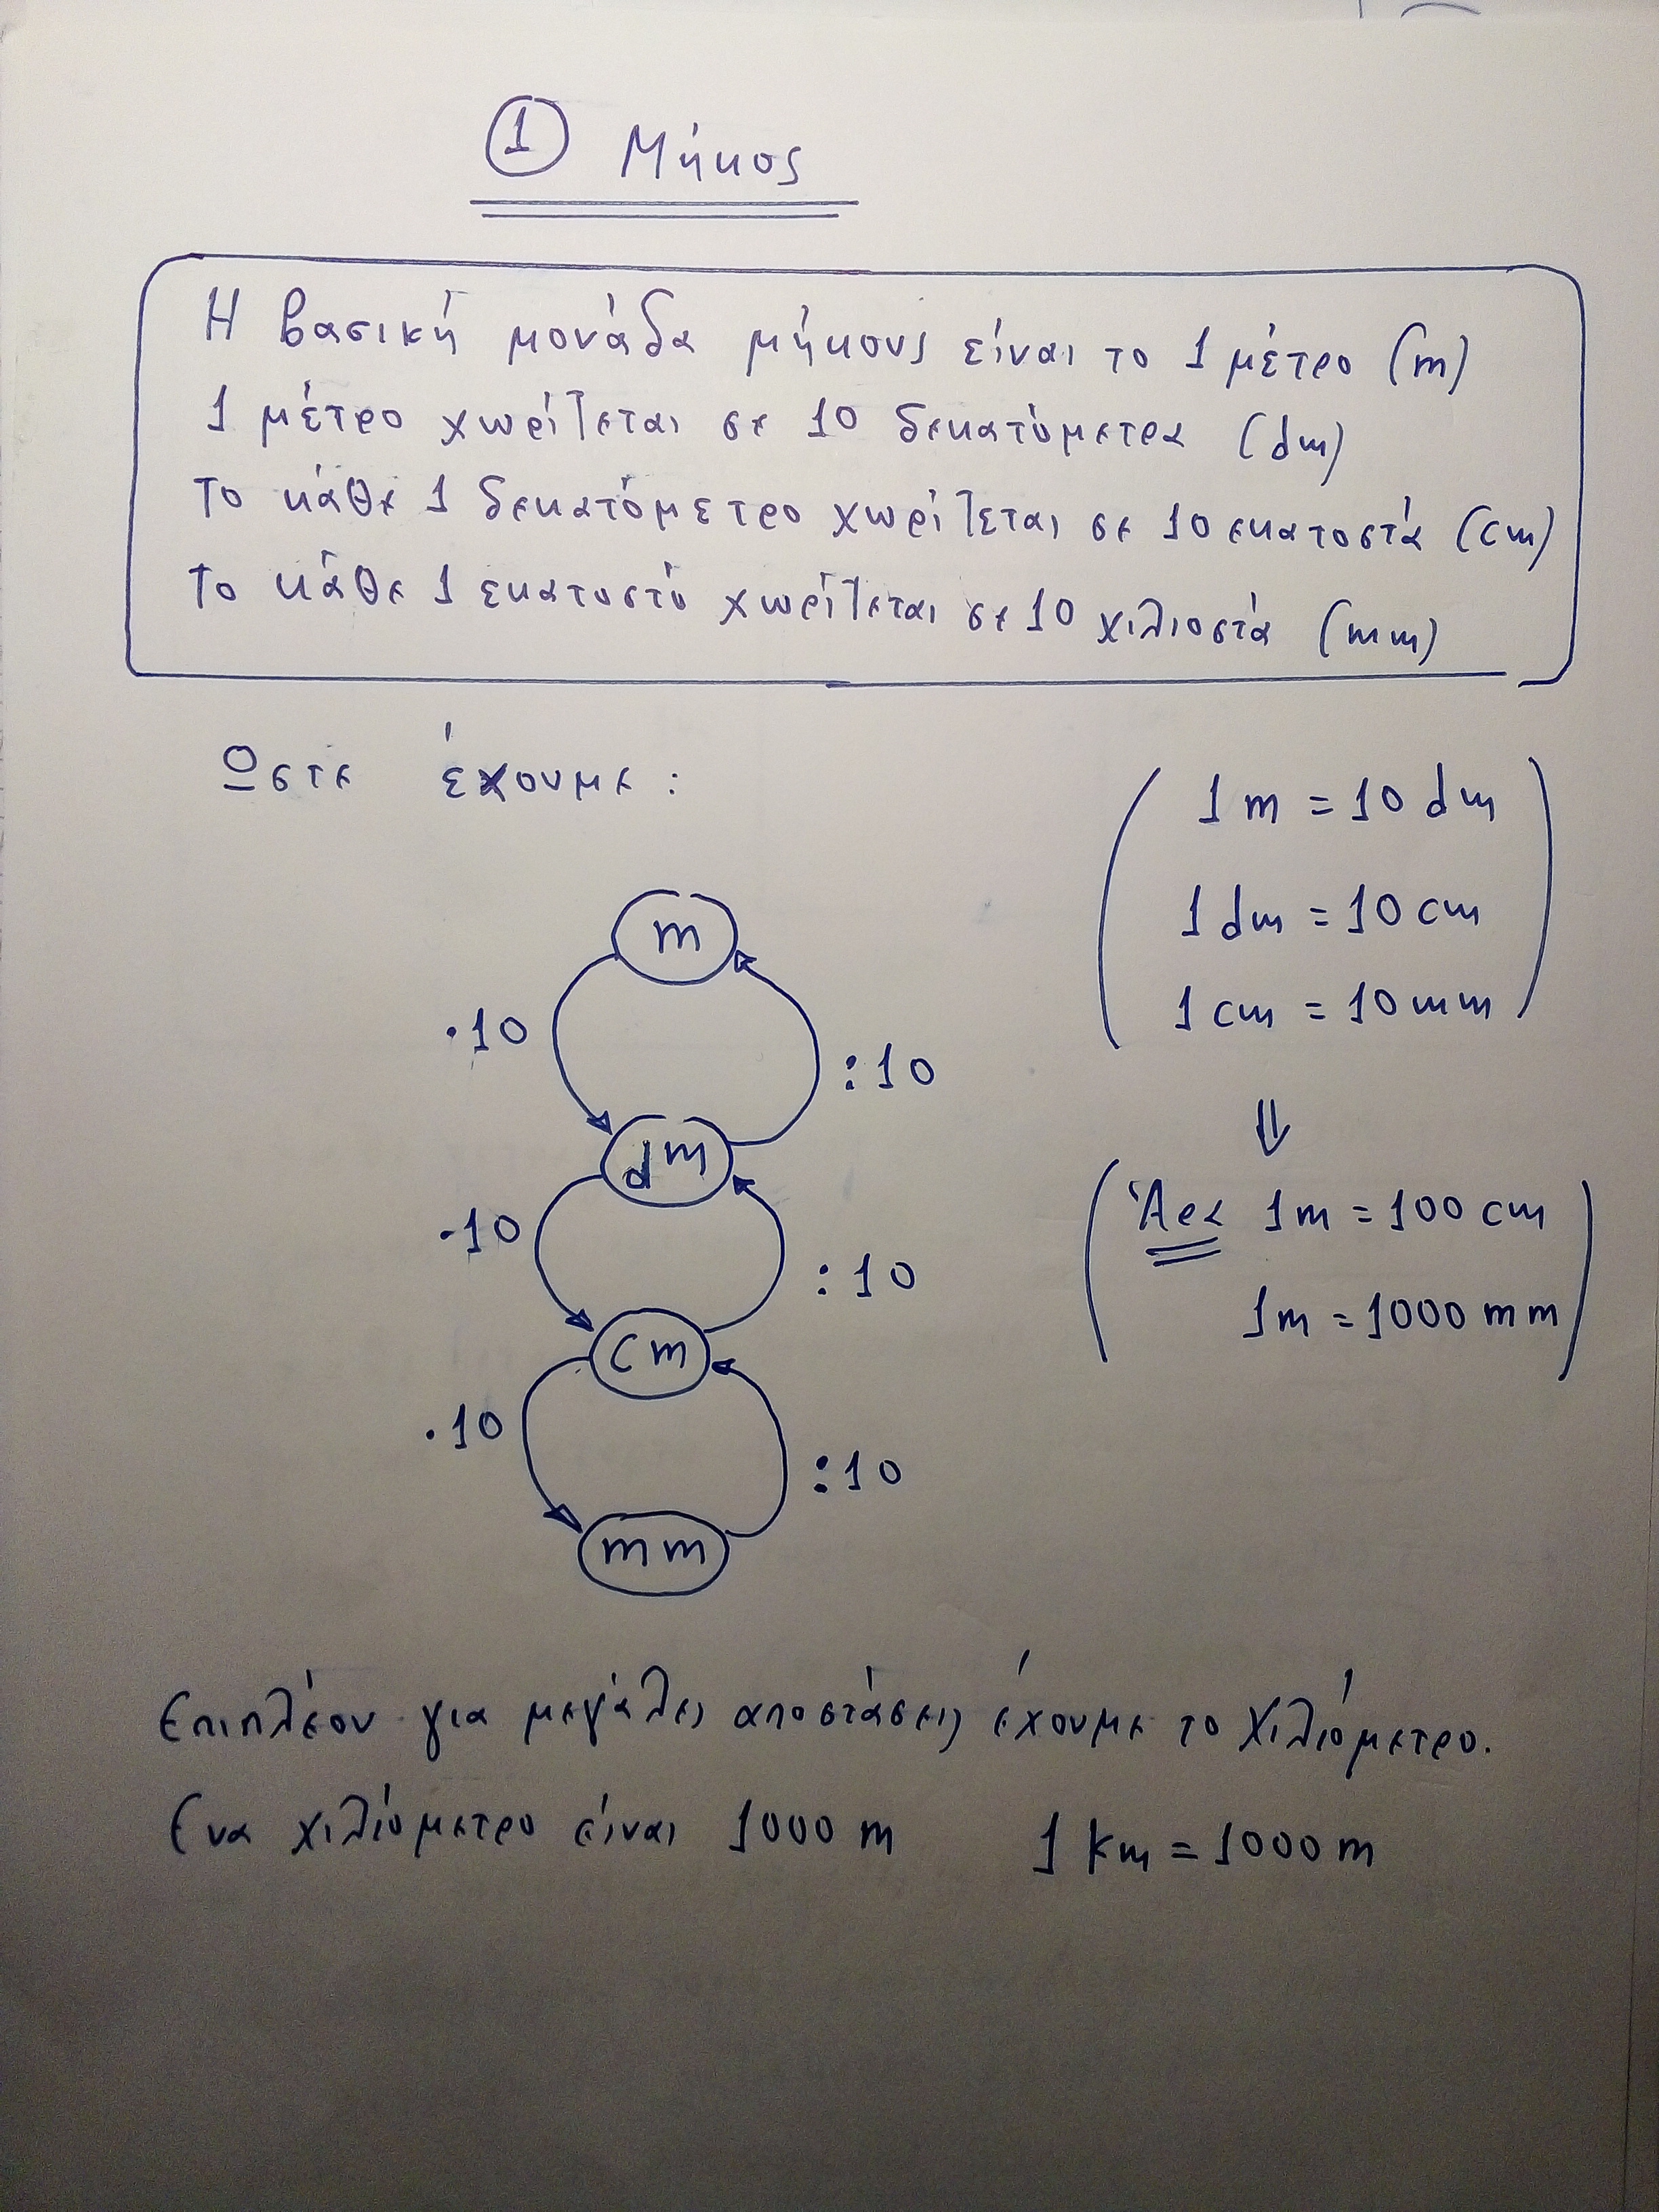 1 Μήκος
Η βασική μονάδα μήκους είναι το 1 μέτρο (m)
1 μέτρο χωρίζεται σε 10 δεκατόμετρα (dm)
Το κάθε 1 δεκατόμετρο χωρίζεται σε 10 εκατοστά (cm)
Το κάθε 1 εκατοστό χωρίζεται σε 10 χιλιοστά (mm)
Ωστε έχουμε:
1 m = 10 dm
1 dm = 10 cm
1 cm = 10 mm
⇓
Άρα 1m = 100 cm
1m = 1000 mm
m
·10
:10
dm
·10
:10
cm
·10
:10
mm
Επιπλέον για μεγάλες αποστάσεις έχουμε το Χιλιόμετρο.
Ενα χιλιόμετρο είναι 1000 m 1 km = 1000 m